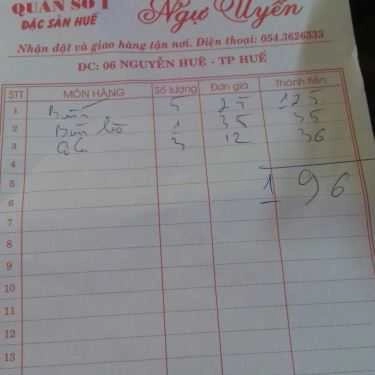 QUÁN SỐ 1 Ngự Uyển
ĐẶC SẢN HUẾ
Nhận đặt và giao hàng tận nơi. Điện thoại: 054.3626333
ĐC: 06 NGUYỄN HUỆ - TP HUẾ
STT MÓN HÀNG Số lượng Đơn giá Thành tiền
1 Bún 5 25 125
2 Bún bò 1 35 35
3 3 12 36
4
5 196
6
7
8
9
10
11
12
13